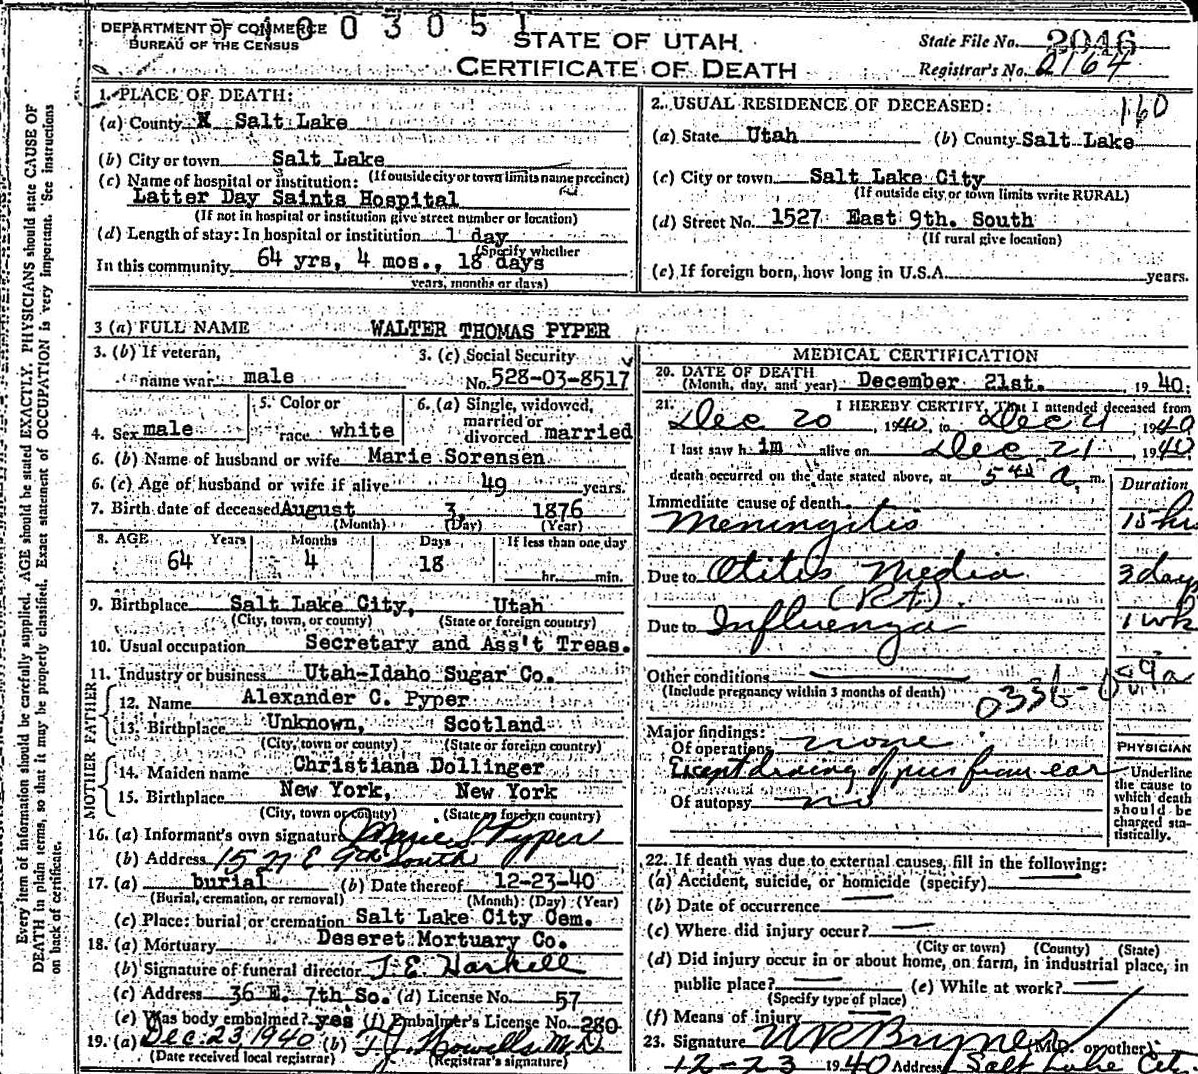 DEPARTMENT OF COMMERCE
BUREAU OF THE CENSUS
003051
STATE OF UTAH
CERTIFICATE OF DEATH
State File No. 2046
Registrar's No. 2164
1. PLACE OF DEATH:
(a) County X Salt Lake
(b) City or town Salt Lake
(If outside city or town limits name precinct)
(c) Name of hospital or institution:
Latter Day Saints Hospital
(If not in hospital or institution give street number or location)
(d) Length of stay: In hospital or institution 1 day
(Specify whether
In this community 64 yrs, 4 mos., 18 days
years, months or days)
2. USUAL RESIDENCE OF DECEASED: 160
(a) State Utah (b) County Salt Lake
(c) City or town Salt Lake City
(If outside city or town limits write RURAL)
(d) Street No. 1527 East 9th. South
(If rural give location)
(e) If foreign born, how long in U.S.A. years.
3 (a) FULL NAME WALTER THOMAS PYPER
3. (b) If veteran, name war male
3. (c) Social Security No. 528-03-8517
4. Sex male
5. Color or race white
6. (a) Single, widowed, married or divorced married
6. (b) Name of husband or wife Marie Sorensen
6. (c) Age of husband or wife if alive 49 years.
7. Birth date of deceased August 3, 1876
(Month) (Day) (Year)
8. AGE Years Months Days If less than one day
64 4 18 hr. min.
9. Birthplace Salt Lake City, Utah
(City, town, or county) (State or foreign country)
10. Usual occupation Secretary and Ass't Treas.
11. Industry or business Utah-Idaho Sugar Co.
FATHER
12. Name Alexander C. Pyper
13. Birthplace Unknown, Scotland
(City, town or county) (State or foreign country)
MOTHER
14. Maiden name Christiana Dollinger
15. Birthplace New York, New York
(City, town or county) (State or foreign country)
16. (a) Informant's own signature Marie S Pyper
(b) Address 1527 E 9th South
17. (a) burial (b) Date thereof 12-23-40
(Burial, cremation, or removal) (Month) (Day) (Year)
(c) Place: burial or cremation Salt Lake City Cem.
18. (a) Mortuary Deseret Mortuary Co.
(b) Signature of funeral director J. E. Harkell
(c) Address 36 E. 7th So. (d) License No. 57
(e) Was body embalmed? yes (f) Embalmer's License No. 280
19. (a) Dec. 23, 1940 (b) T. J. Howells M.D.
(Date received local registrar) (Registrar's signature)
MEDICAL CERTIFICATION
20. DATE OF DEATH
(Month, day, and year) December 21st. 1940.
21. I HEREBY CERTIFY, That I attended deceased from
Dec 20, 1940, to Dec 21 1940
I last saw him alive on Dec 21 1940.
death occurred on the date stated above, at 5 40 a. m.
Duration
Immediate cause of death
Meningitis 15 hrs
Due to Otitis Media 3 days
(Rt).
Due to Influenza 1 wk
Other conditions
(Include pregnancy within 3 months of death)
Major findings:
Of operations none
Except draining of pus from ear
Of autopsy no
PHYSICIAN
Underline the cause to which death should be charged statistically.
22. If death was due to external causes, fill in the following:
(a) Accident, suicide, or homicide (specify)
(b) Date of occurrence
(c) Where did injury occur?
(City or town) (County) (State)
(d) Did injury occur in or about home, on farm, in industrial place, in
public place? (e) While at work?
(Specify type of place)
(f) Means of injury
23. Signature W R Bryner (M.D. or other)
12-23 1940 Address Salt Lake City
Every item of information should be carefully supplied. AGE should be stated EXACTLY. PHYSICIANS should state CAUSE OF
DEATH in plain terms, so that it may be properly classified. Exact statement of OCCUPATION is very important. See instructions
on back of certificate.